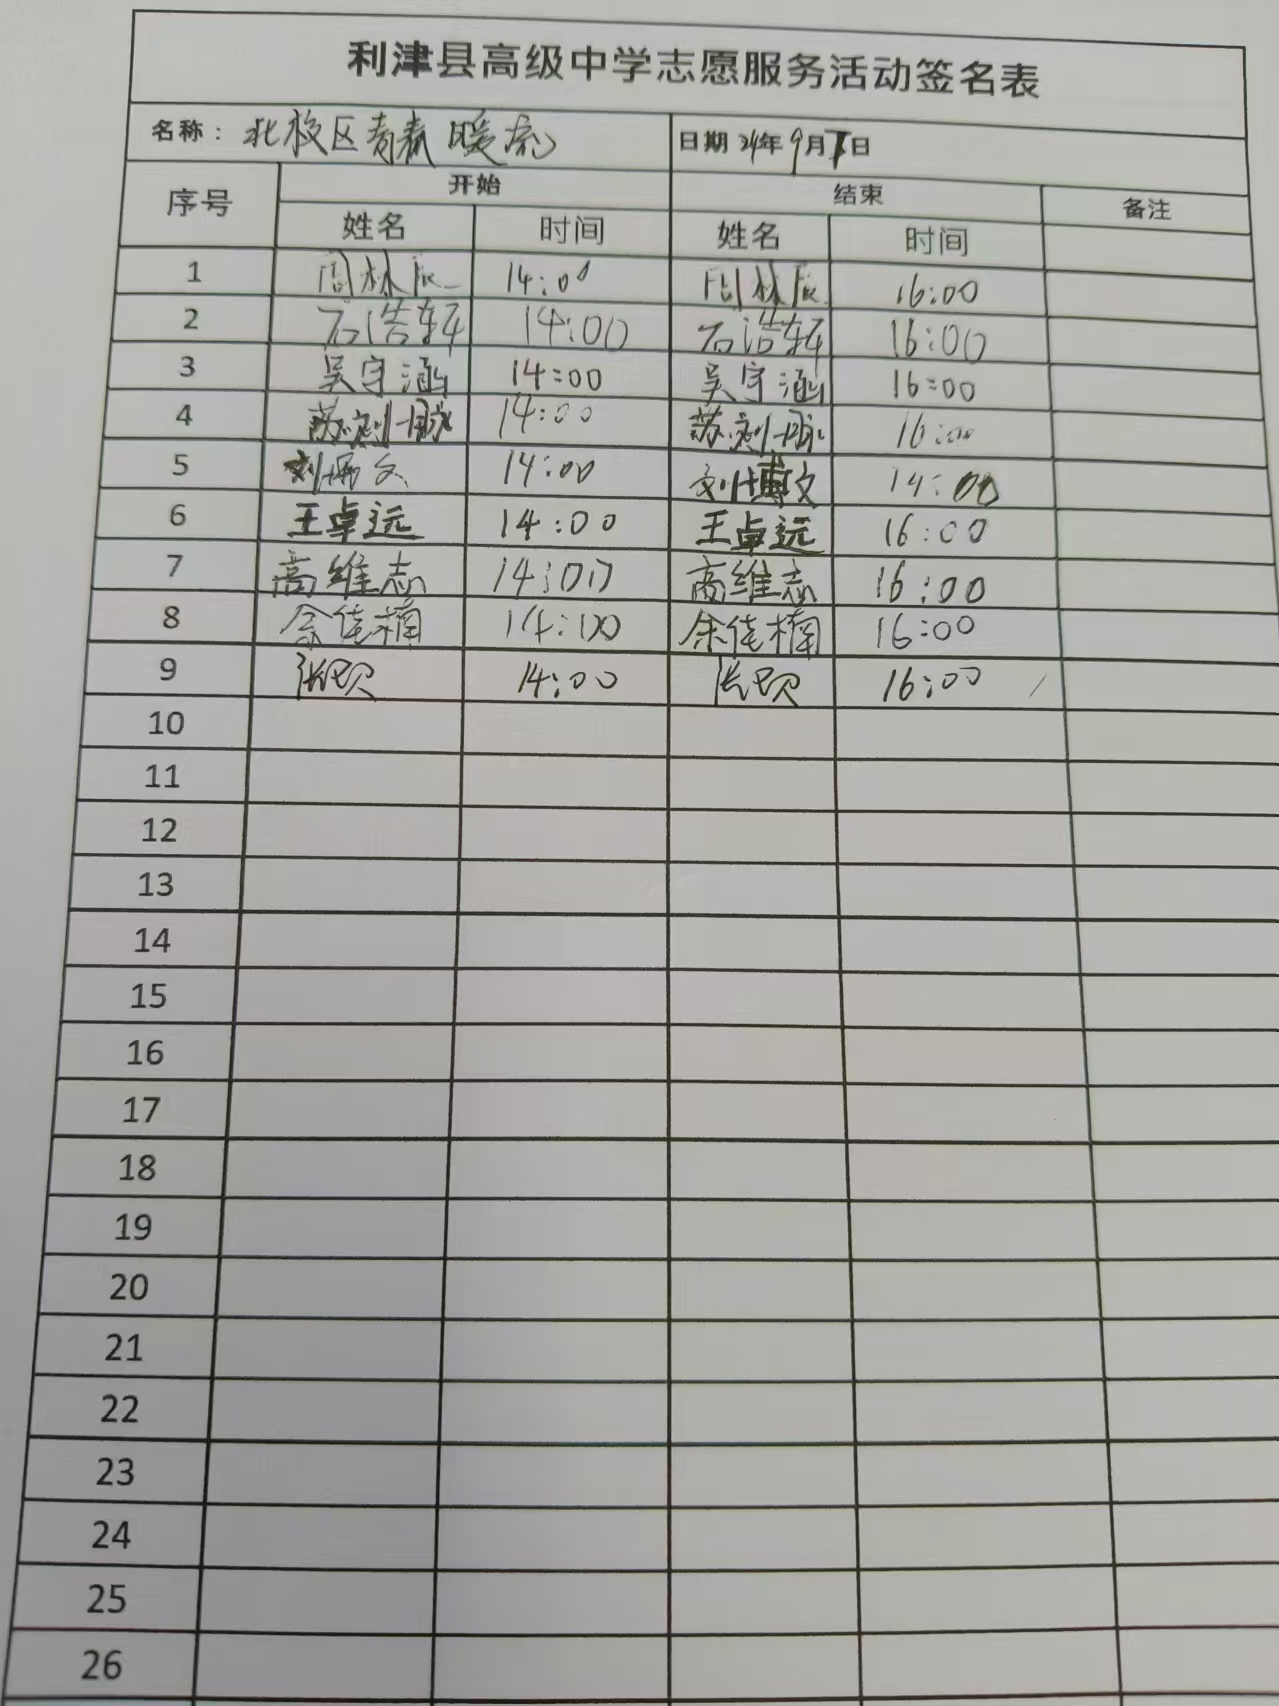 利津县高级中学志愿服务活动签名表
名称：北校区青春暖流 日期 24年9月7日
序号 开始 结束 备注
姓名 时间 姓名 时间
1 周林辰 14:00 周林辰 16:00
2 石浩轩 14:00 石浩轩 16:00
3 吴宇涵 14:00 吴宇涵 16:00
4 14:00 16:00
5 刘博文 14:00 刘博文 14:00
6 王卓远 14:00 王卓远 16:00
7 高维志 14:00 高维志 16:00
8 余佳楠 14:00 余佳楠 16:00
9 14:00 16:00
10
11
12
13
14
15
16
17
18
19
20
21
22
23
24
25
26